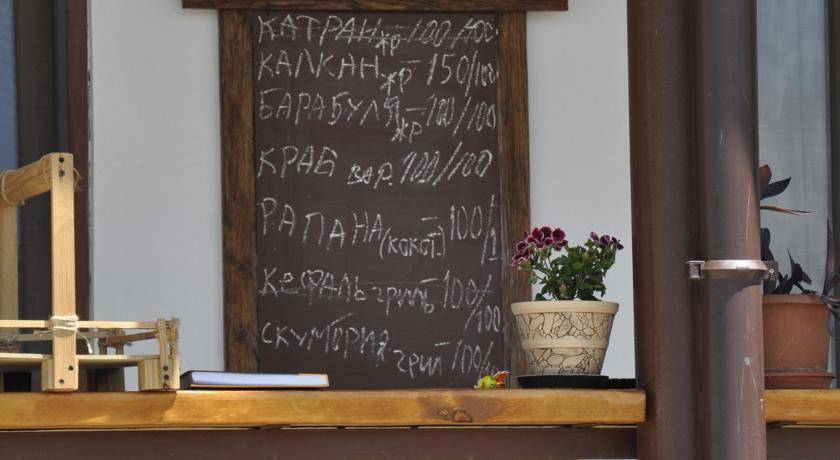 КАТРАН жр – 100/100
КАЛКАН жр – 150/100
БАРАБУЛЯ жр – 100/100
КРАБ ВАР. 100/100
РАПАНА (кокот.) – 100/1
КЕФАЛЬ гриль – 100/
/100
СКУМБОРИЯ гРИЛ 100/